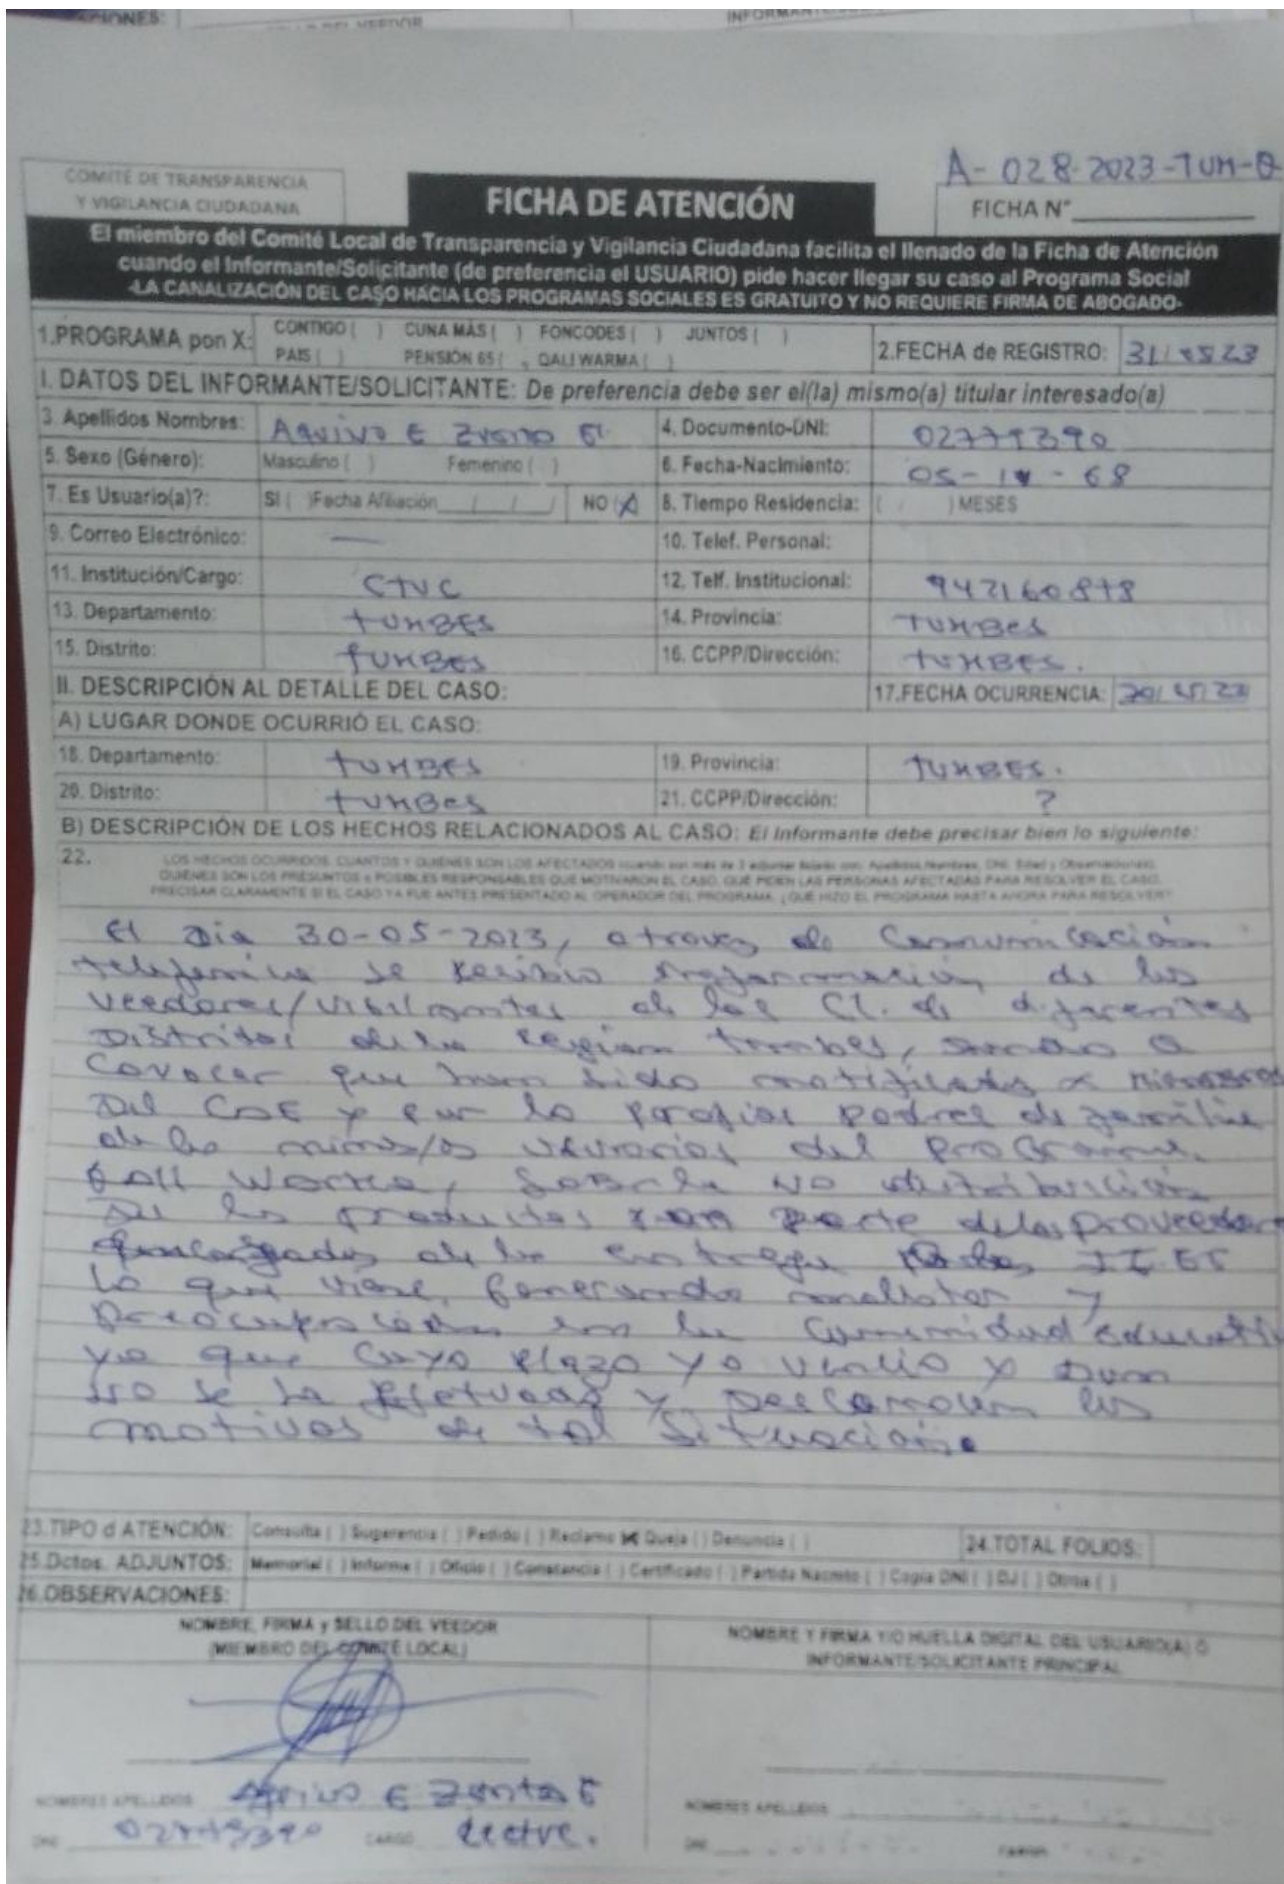 ACIONES:
DEL VEEDOR
COMITÉ DE TRANSPARENCIA
Y VIGILANCIA CIUDADANA
FICHA DE ATENCIÓN
A-028-2023-TUM-Q
FICHA N°
El miembro del Comité Local de Transparencia y Vigilancia Ciudadana facilita el llenado de la Ficha de Atención
cuando el Informante/Solicitante (de preferencia el USUARIO) pide hacer llegar su caso al Programa Social
-LA CANALIZACIÓN DEL CASO HACIA LOS PROGRAMAS SOCIALES ES GRATUITO Y NO REQUIERE FIRMA DE ABOGADO-
1.PROGRAMA pon X: CONTIGO ( ) CUNA MÁS ( ) FONCODES ( ) JUNTOS ( )
PAIS ( ) PENSIÓN 65 ( ) QALI WARMA ( )
2.FECHA de REGISTRO: 31/0523
I. DATOS DEL INFORMANTE/SOLICITANTE: De preferencia debe ser el(la) mismo(a) titular interesado(a)
3. Apellidos Nombres: 4. Documento-DNI: 02779390
5. Sexo (Género): Masculino ( ) Femenino ( ) 6. Fecha-Nacimiento: 68
7. Es Usuario(a)?: SI ( )Fecha Afiliación / / / NO (X) 8. Tiempo Residencia: ( ) MESES
9. Correo Electrónico: — 10. Telef. Personal:
11. Institución/Cargo: CTVC 12. Telf. Institucional: 942160878
13. Departamento: TUMBES 14. Provincia: TUMBES
15. Distrito: TUMBES 16. CCPP/Dirección: TUMBES.
II. DESCRIPCIÓN AL DETALLE DEL CASO: 17.FECHA OCURRENCIA:
A) LUGAR DONDE OCURRIÓ EL CASO:
18. Departamento: TUMBES 19. Provincia: TUMBES.
20. Distrito: TUMBES 21. CCPP/Dirección: ?
B) DESCRIPCIÓN DE LOS HECHOS RELACIONADOS AL CASO: El Informante debe precisar bien lo siguiente:
22. LOS HECHOS OCURRIDOS, CUANTOS Y QUIÉNES SON LOS AFECTADOS
QUIÉNES SON LOS PRESUNTOS o POSIBLES RESPONSABLES QUE MOTIVARON EL CASO, QUÉ PIDEN LAS PERSONAS AFECTADAS PARA RESOLVER EL CASO,
PRECISAR CLARAMENTE SI EL CASO YA FUE ANTES PRESENTADO AL OPERADOR DEL PROGRAMA, ¿QUÉ HIZO EL PROGRAMA HASTA AHORA PARA RESOLVER?
El Dia 30-05-2023, a travez de Comunicación
telefonica se recibio Información de los
veedores/vigilantes de los CL. de diferentes
Distritos de la Region Tumbes, dando a
Conocer que han sido notificados x miembros
Del CAE y por lo propios padres de familia
de los niños/as usuarios del programa
Qali Warma, sobre la no distribución
De los productos por parte de los proveedores
encargados de la entrega II.EE
lo que viene generando malestar y
preocupación en la Comunidad educativa
ya que cuyo plazo ya vencio y aun
no se ha y Desconocen los
motivos de tal situación.
23.TIPO d ATENCIÓN: Consulta ( ) Sugerencia ( ) Pedido ( ) Reclamo (X) Queja ( ) Denuncia ( ) 24.TOTAL FOLIOS:
25.Dctos. ADJUNTOS: Memorial ( ) Informe ( ) Oficio ( ) Constancia ( ) Certificado ( ) Partida Nacmto ( ) Copia DNI ( ) DJ ( ) Otros ( )
26.OBSERVACIONES:
NOMBRE, FIRMA y SELLO DEL VEEDOR
(MIEMBRO DEL COMITÉ LOCAL)
NOMBRE Y FIRMA Y/O HUELLA DIGITAL DEL USUARIO(A) O
INFORMANTE/SOLICITANTE PRINCIPAL
NOMBRES APELLIDOS
DNI CARGO
NOMBRES APELLIDOS
DNI CARGO